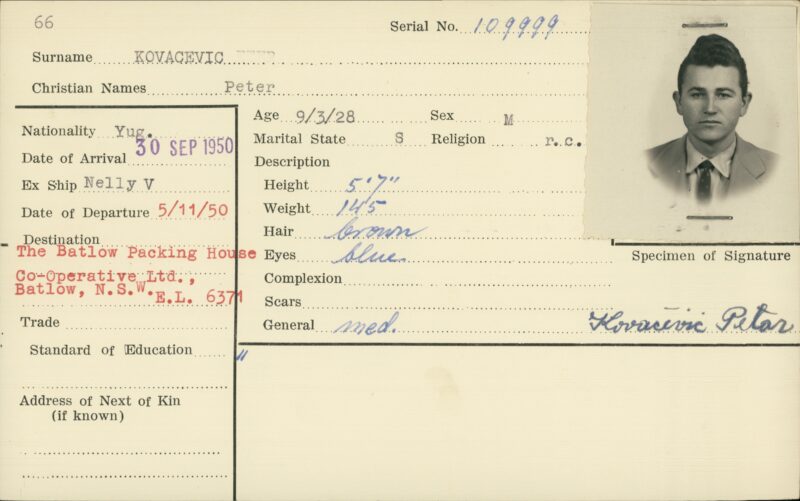 66
Serial No. 109999
Surname KOVACEVIC
Christian Names Peter
Nationality Yug.
Date of Arrival 30 SEP 1950
Ex Ship Nelly V
Date of Departure 5/11/50
Destination
The Batlow Packing House
Co-Operative Ltd.,
Batlow, N.S.W. E.L. 6371
Trade
Standard of Education
Address of Next of Kin
(if known)
Age 9/3/28 Sex M
Marital State S Religion r.c.
Description
Height 5'7"
Weight 145
Hair brown
Eyes blue
Complexion
Scars
General med.
"
Specimen of Signature
Kovačević Petar